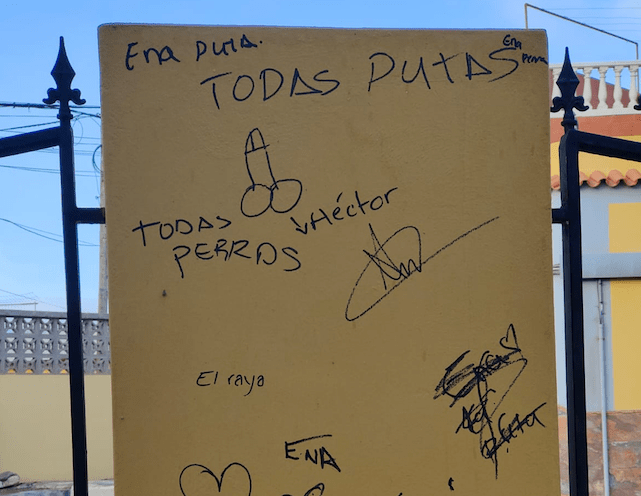 Ena puta.
Ena
perra
TODAS PUTAS
TODAS
PERRAS
Héctor
El raya
ENA